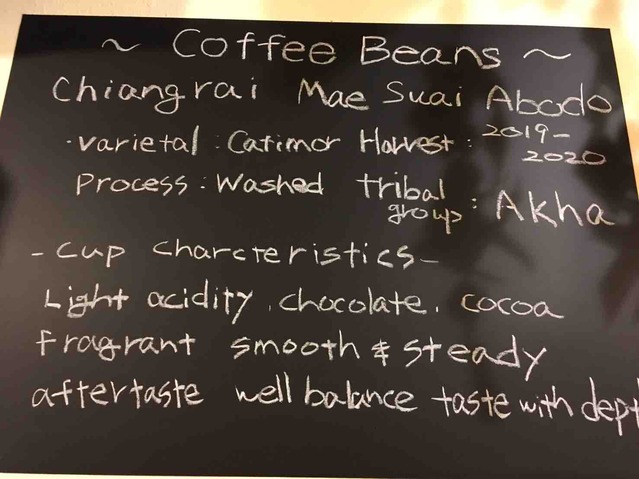 ~ Coffee Beans ~
Chiangrai Mae Suai Abodo
·varietal : Catimor Harvest : 2019-2020
Process : Washed tribal group : Akha
- Cup charcteristics -
Light acidity, chocolate, cocoa
fragrant smooth & steady
aftertaste well balance taste with dept